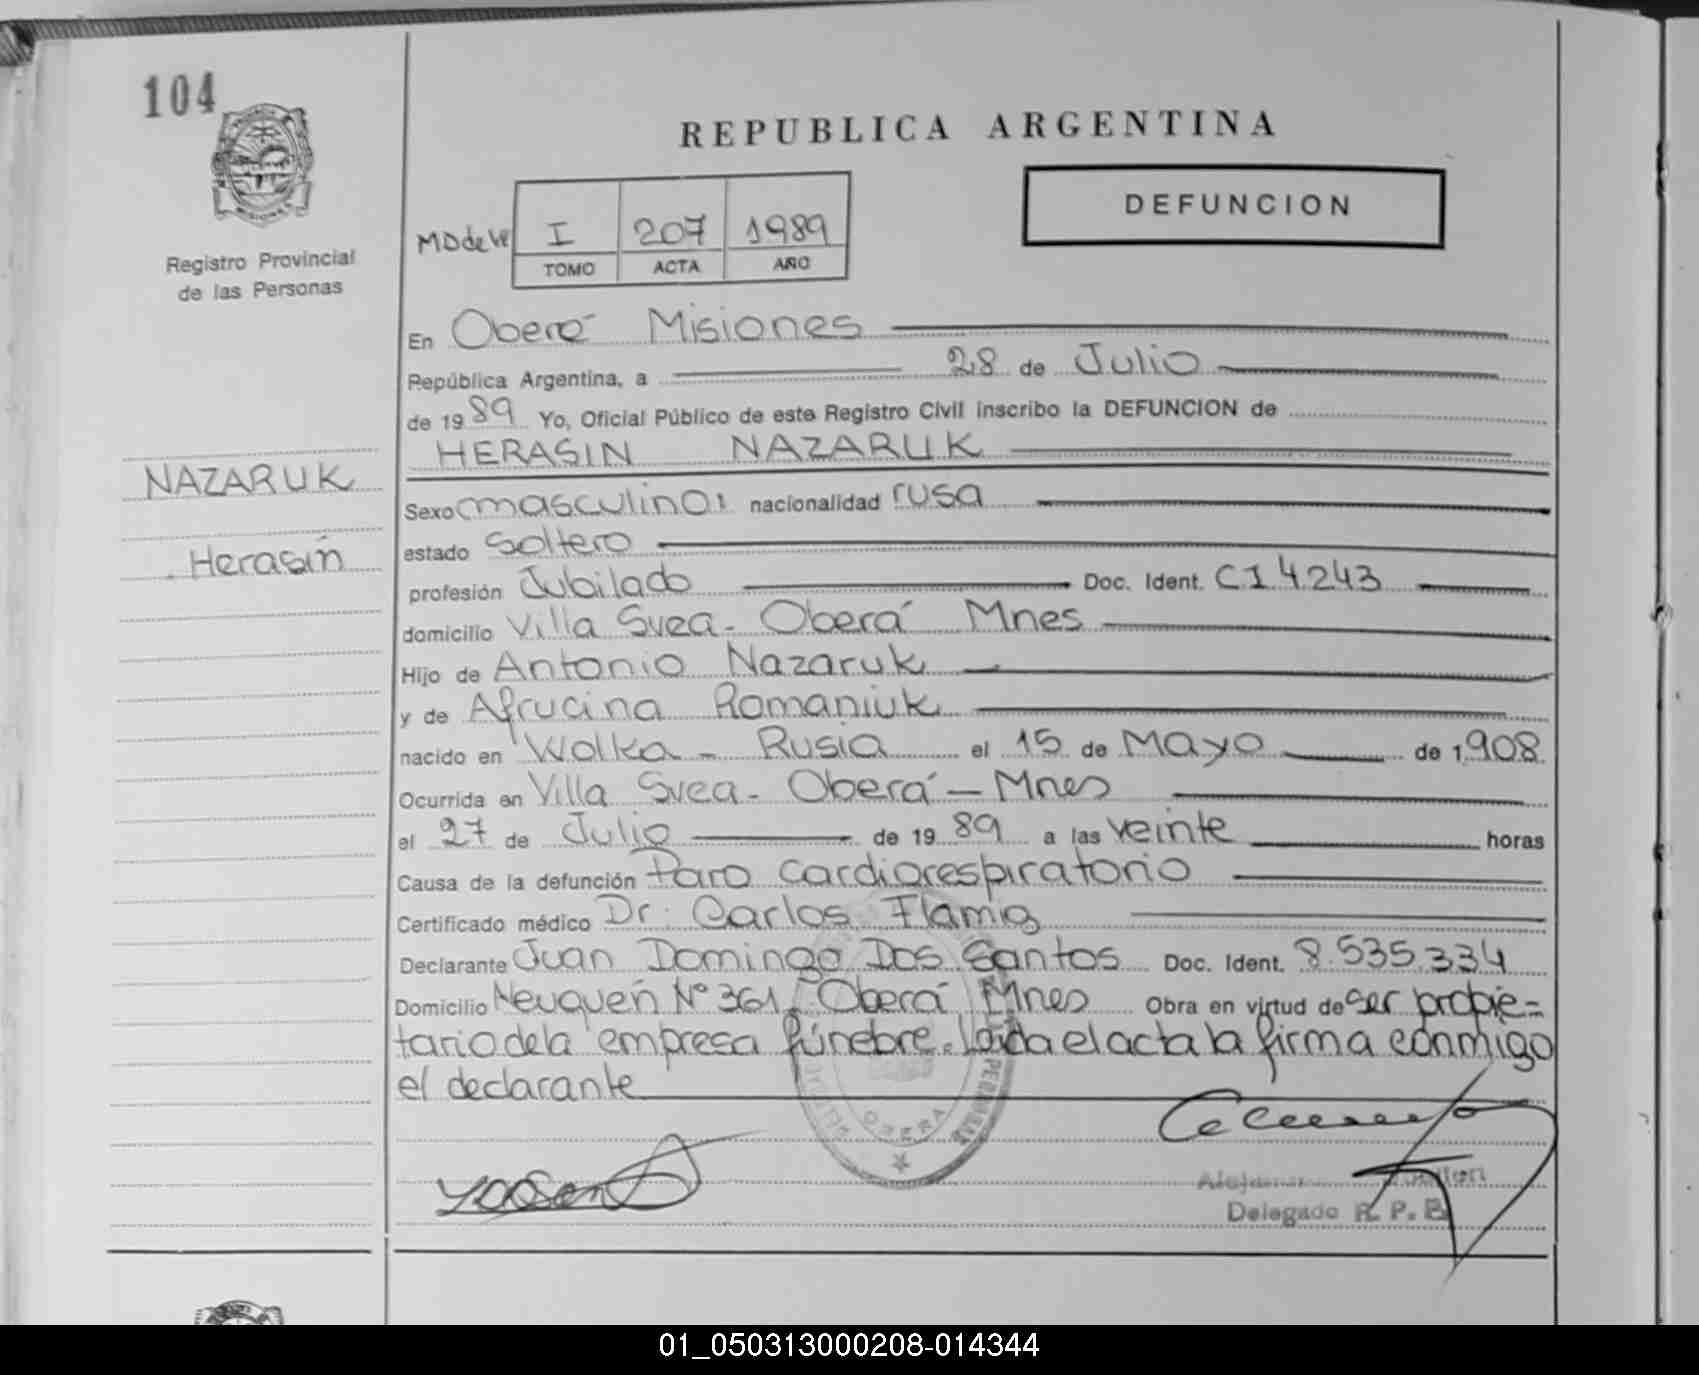 104
MISIONES
Registro Provincial
de las Personas
NAZARUK
Herasin
REPUBLICA ARGENTINA
DEFUNCION
I 207 1989
TOMO ACTA AÑO
En Oberá Misiones
República Argentina, a 28 de Julio
de 1989 Yo, Oficial Público de este Registro Civil inscribo la DEFUNCION de
HERASIN NAZARUK
Sexo masculino: nacionalidad rusa
estado Soltero
profesión Jubilado Doc. Ident. CI 4.243
domicilio Villa Svea - Oberá Mnes
Hijo de Antonio Nazaruk
y de Afrucina Romaniuk
nacido en Wolka - Rusia el 15 de Mayo de 1.908
Ocurrida en Villa Svea - Oberá - Mnes
el 27 de Julio de 19 89 a las veinte horas
Causa de la defunción Paro cardiorespiratorio
Certificado médico Dr. Carlos Flamig
Declarante Juan Domingo Dos Santos Doc. Ident. 8.535.334
Domicilio Neuquén Nº 361 - Oberá Mnes Obra en virtud de ser propie=
tario de la empresa fúnebre. Leída el acta la firma conmigo
el declarante
OBERA
Delegado R. P. P.
01_050313000208-014344